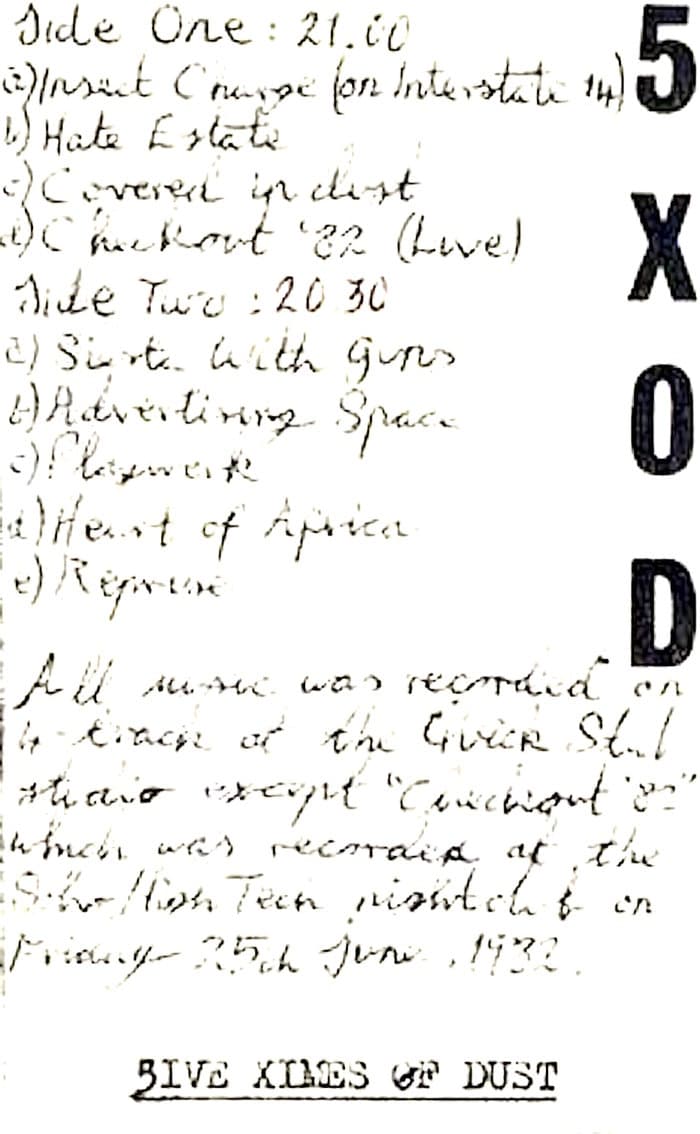 Side One: 21.00
a) Insect Charge (on Interstate 14)
b) Hate Estate
c) Covered in dust
d) Checkout '82 (Live)
Side Two: 20.30
a) Siesta With Guns
b) Advertising Space
c) Playwerk
d) Heart of Africa
e) Reprise
All music was recorded on
4-track at the Quick Stab
studio except "Checkout '82"
which was recorded at the
Soho/High Tech nightclub on
Friday 25th June, 1982.
5IVE XIMES OF DUST
5
X
O
D